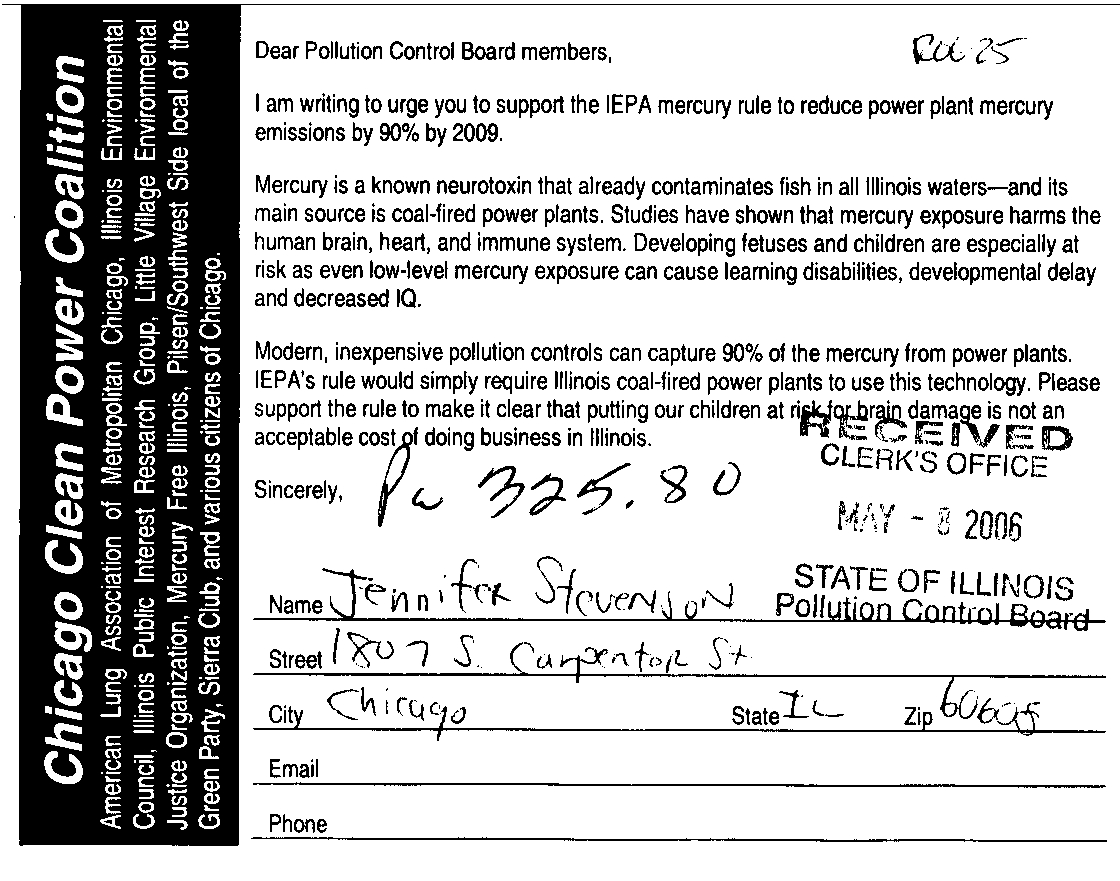 Chicago Clean Power Coalition
American Lung Association of Metropolitan Chicago, Illinois Environmental
Council, Illinois Public Interest Research Group, Little Village Environmental
Justice Organization, Mercury Free Illinois, Pilsen/Southwest Side local of the
Green Party, Sierra Club, and various citizens of Chicago.
Dear Pollution Control Board members,
I am writing to urge you to support the IEPA mercury rule to reduce power plant mercury
emissions by 90% by 2009.
Mercury is a known neurotoxin that already contaminates fish in all Illinois waters—and its
main source is coal-fired power plants. Studies have shown that mercury exposure harms the
human brain, heart, and immune system. Developing fetuses and children are especially at
risk as even low-level mercury exposure can cause learning disabilities, developmental delay
and decreased IQ.
Modern, inexpensive pollution controls can capture 90% of the mercury from power plants.
IEPA's rule would simply require Illinois coal-fired power plants to use this technology. Please
support the rule to make it clear that putting our children at risk for brain damage is not an
acceptable cost of doing business in Illinois.
RECEIVED
CLERK'S OFFICE
MAY - 8 2006
STATE OF ILLINOIS
Pollution Control Board
Sincerely,
325.80
Name Jennifer Stevenson
Street 1807 S. Carpentor St
City Chicago State IL Zip 60608
Email
Phone